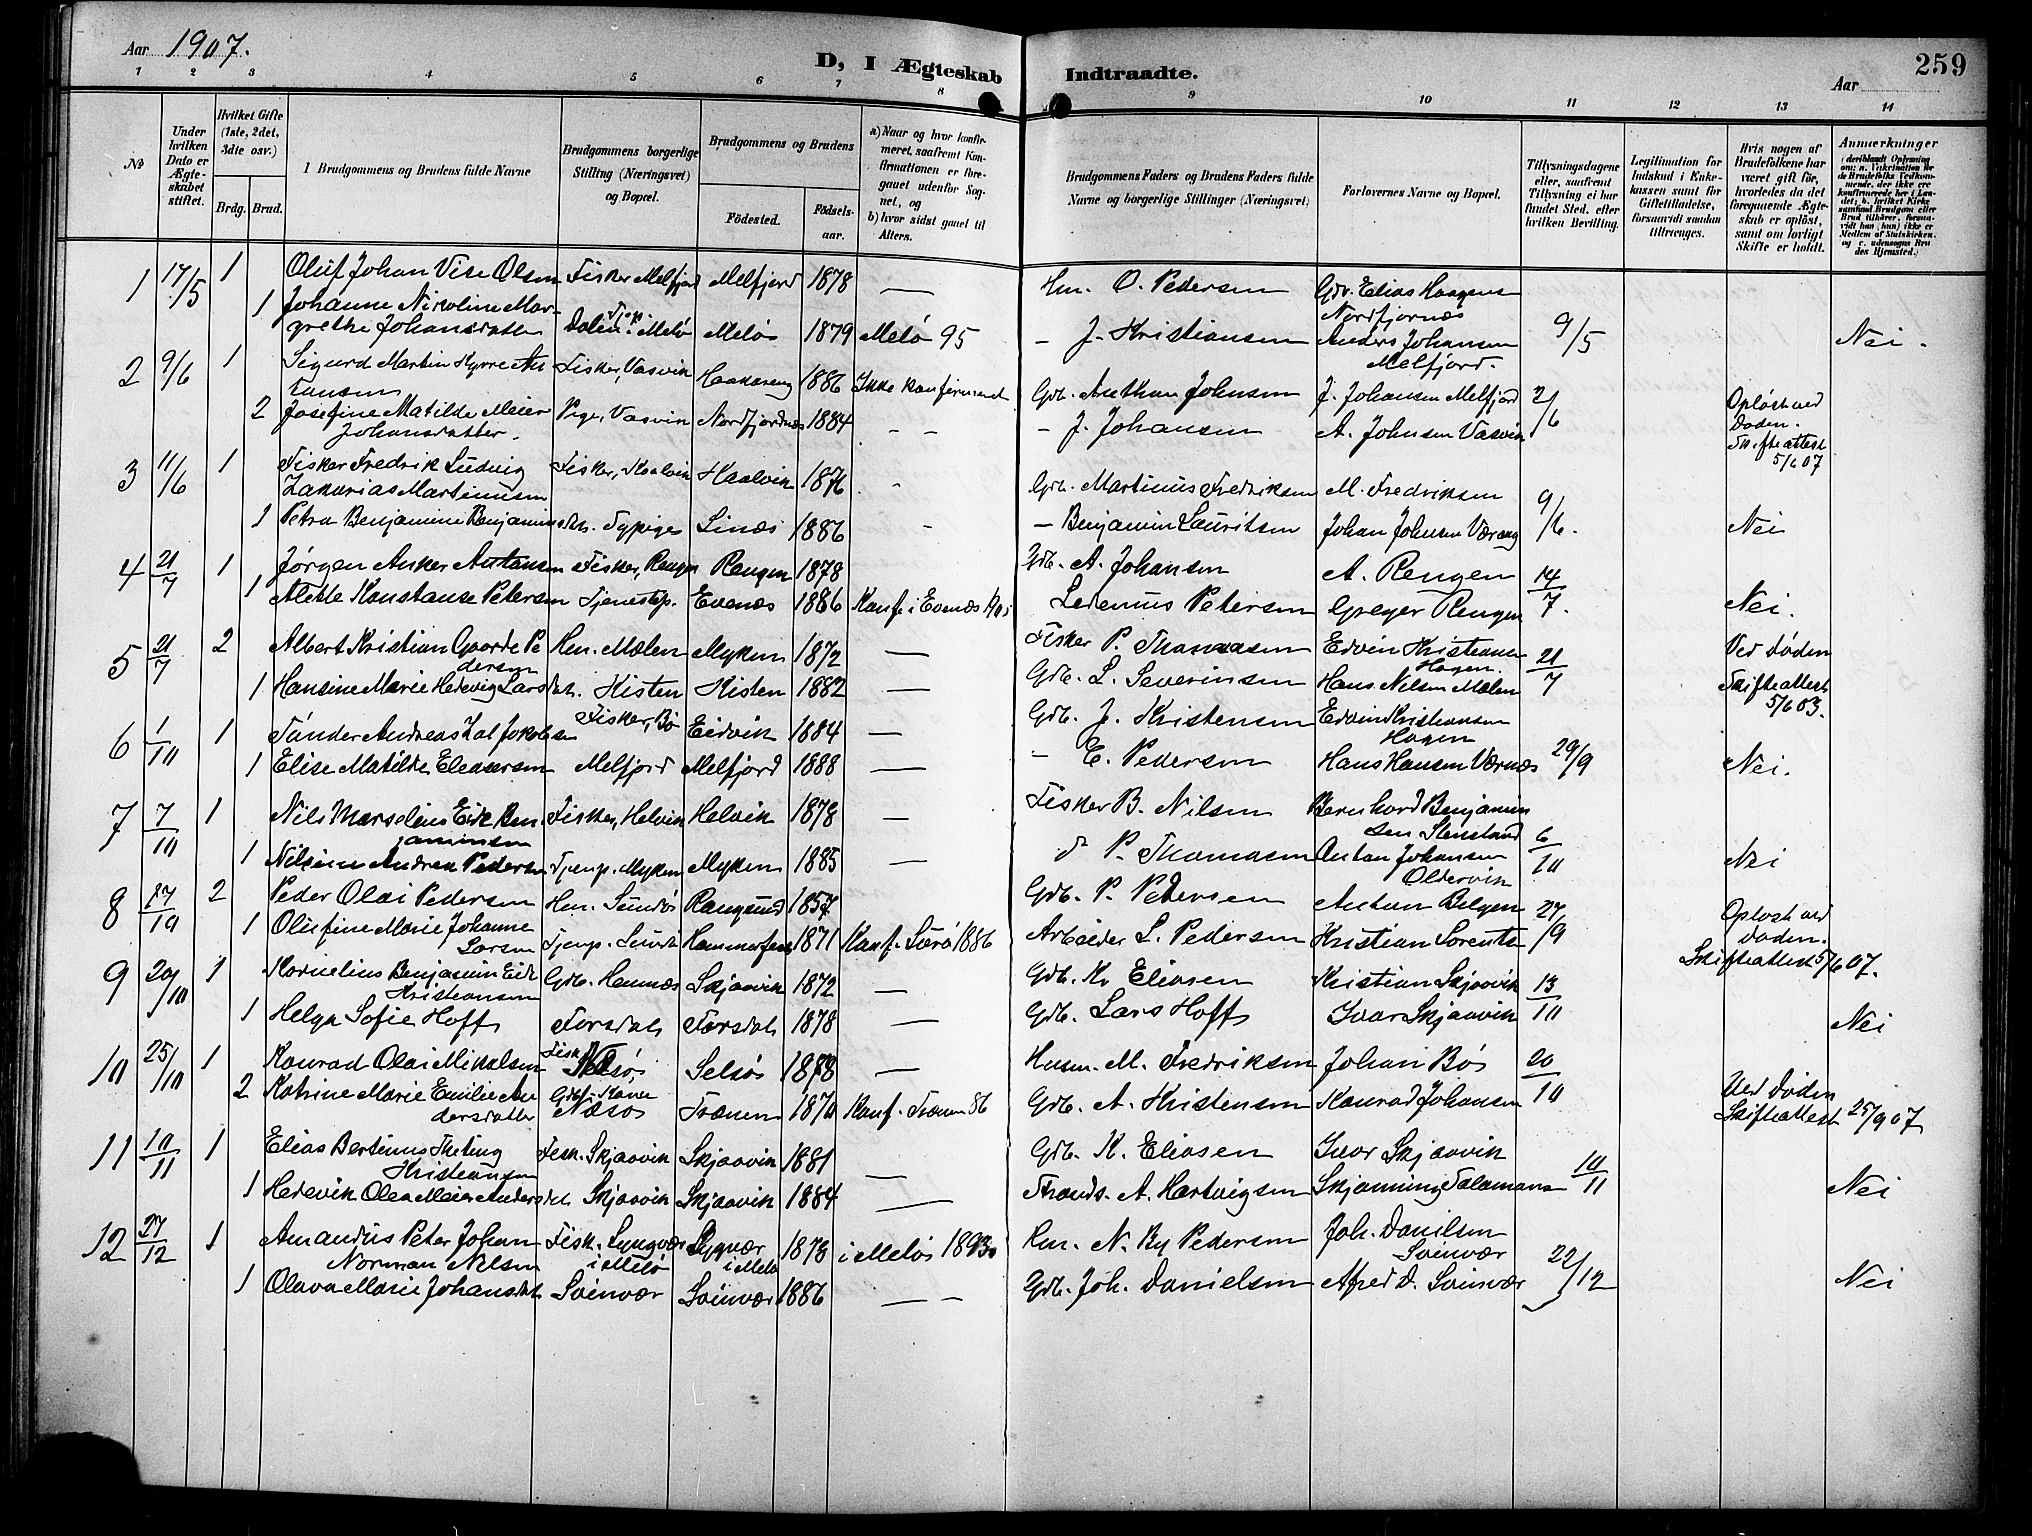 Aar 1907.
D, I Ægteskab Indtraadte.
Aar
259
1 2 3 4 5 6 7 8 9 10 11 12 13 14
№
Under hvilken Dato er Ægteskabet stiftet.
Hvilket Gifte (1ste, 2det, 3die osv.)
Brdg. Brud.
Brudgommens og Brudens fulde Navne
Brudgommens borgerlige Stilling (Næringsvei) og Bopæl.
Brudgommens og Brudens
Födested. Födselsaar.
a) Naar og hvor konfirmeret, saafremt Konfirmationen er foregaaet udenfor Sognet, og
b) hvor sidst gaaet til Alters.
Brudgommens Faders og Brudens Faders fulde Navne og borgerlige Stillinger (Næringsvei)
Forlovernes Navne og Bopæl.
Tillysningsdagene eller, saafremt Tillysning ei har fundet Sted, efter hvilken Bevilling.
Legitimation for Indskud i Enkekassen samt for Giftetilladelse, forsaavidt saadan tiltrænges.
Hvis nogen af Brudefolkene har været gift för, hvorledes da det foregaaende Ægteskab er oplöst, samt om lovligt Skifte er holdt.
Anmærkninger
1 17/5 1 Oluf Johan Vise Olsen Fisker Melfjord Melfjord 1878 — Hm. O. Pedersen Gdr. Elias Haagens
Nordfjornæs
1 Johanne Nikoline Margrethe Johansdatter Tjep. Dalen i Melö Melös 1879 Melö 95 - J. Kristiansen Anders Johansen Melfjord. 9/5 Nei.
2 9/6 1 Sigurd Martin Hyrre Antansen Fisker, Vasvik Haakaseng 1886 Ikke konfirmeret Gdb. Anthon Johnsen J. Johansen Melfjord 2/6
2 Josefine Matilde Meier Johansdatter. Pige, Vasvik Nordfjordnæs 1884 - - - J. Johansen A. Johnsen Vasvik Oplöst ved Döden. Skifteattest 5/6 07
3 11/6 1 Fisker Fredrik Ludvig Zakarias Martinusen Fisker, Haalvik Haalvik 1876 - Gdb. Martinus Fredriksen M. Fredriksen 9/6.
1 Petra Benjamine Benjaminsdtr. Typige Linæs 1886 - — Benjamin Lauritsen Johan Johnsen Værang Nei
4 21/7 1 Jørgen Anker Antansen Fisker, Rengen Rengen 1878 Gdb. A. Johansen A. Rengen 14/7.
1 Alette Konstanse Petersen Tjenestep. Evenæs 1886 Konf. i Evenæs 1905 Ledenius Petersen Greger Rengen Nei.
5 21/7 2 Albert Kristian Gaarde Pedersen Hm. Mælen Myken 1872 — Fisker P. Thomassen Edvin Kristiansen Hagen. 21/7 Ved Döden
1 Hansine Marie Hedevig Larsdat. Kisten Kisten 1882 — Gdb. L. Severinsen Hans Nilsen Mælen Skifteattest 5/6 03.
6 1/10 1 Tønder Andreas Zal Jakobsen Fisker, Bö Eidvik 1884 — Gdb. J. Kristensen Edvin Kristiansen Hagen
1 Elise Matilde Eleasersen Melfjord Melfjord 1888 — - E. Pedersen Hans Hansen Værnæs 29/9 Nei.
7 7/10 1 Nils Marselius Eirk Benjaminsen Fisker, Helvik Helvik 1878 — Fisker B. Nilsen Bernhard Benjaminsen Stensland 6/10
1 Nilsine Andrea Pedersen Tjenp. Myken Myken 1885 — do P. Thomasen Antan Johansen Oldervik Nei
8 17/10 2 Peder Olai Pedersen Hm. Sundös Rangsund 1857 Gdb. P. Pedersen Antan Belgen 27/9 Oplöst ved Döden.
1 Olufine Marie Johanne Larsen Tjenp. Sundö Hammerfest 1871 Konf. Sørö 1886 Arbeider L. Pedersen Kristian Sorents Skifteattest 5/6 07.
9 20/10 1 Kornelius Benjamin Eide Kristiansen Gdb. Hamnæs Skjaavik 1872 — Gdb. Kr Eliasen Kristian Skjaavik 13/10
1 Helga Sofie Hoff Forsdal Forsdal 1878 — Gdb. Lars Hoff Ivar Skjaavik Nei
10 25/10 1 Konrad Olai Mikalsen Fisk. Selsös 1878 Husm. M. Fredriksen Johan Bös 20/10
2 Katrine Marie Emilie Andersdatter Gdbf. Kone Næsö Trænen 1870 Konf. Trænen 86 Gdb. A. Kristensen Konrad Johansen Ved Döden Skifteattest 25/9 07
11 10/11 1 Elias Bertinus Theting Kristiansen Fisk. Skjaavik Skjaavik 1881 — Gdb. K. Eliasen Ivar Skjaavik 10/11
1 Hedevik Olea Meier Andersdat Skjaavik Skjaavik 1884 — Strands. A. Hartvigsen Skjønning Salamans Nei
12 27/12 1 Amandus Peter Johan Norman Nilsen Fisk. Lyngvær i Melö Lyngvær i Melö 1878 i Melös 1893 Hm. N. By Pedersen Joh. Danilsen Svinvær 22/12
1 Olava Marie Johansdat. Svinvær Svinvær 1886 — — Gdb. Joh. Danielsen Alfred D. Svinvær Nei